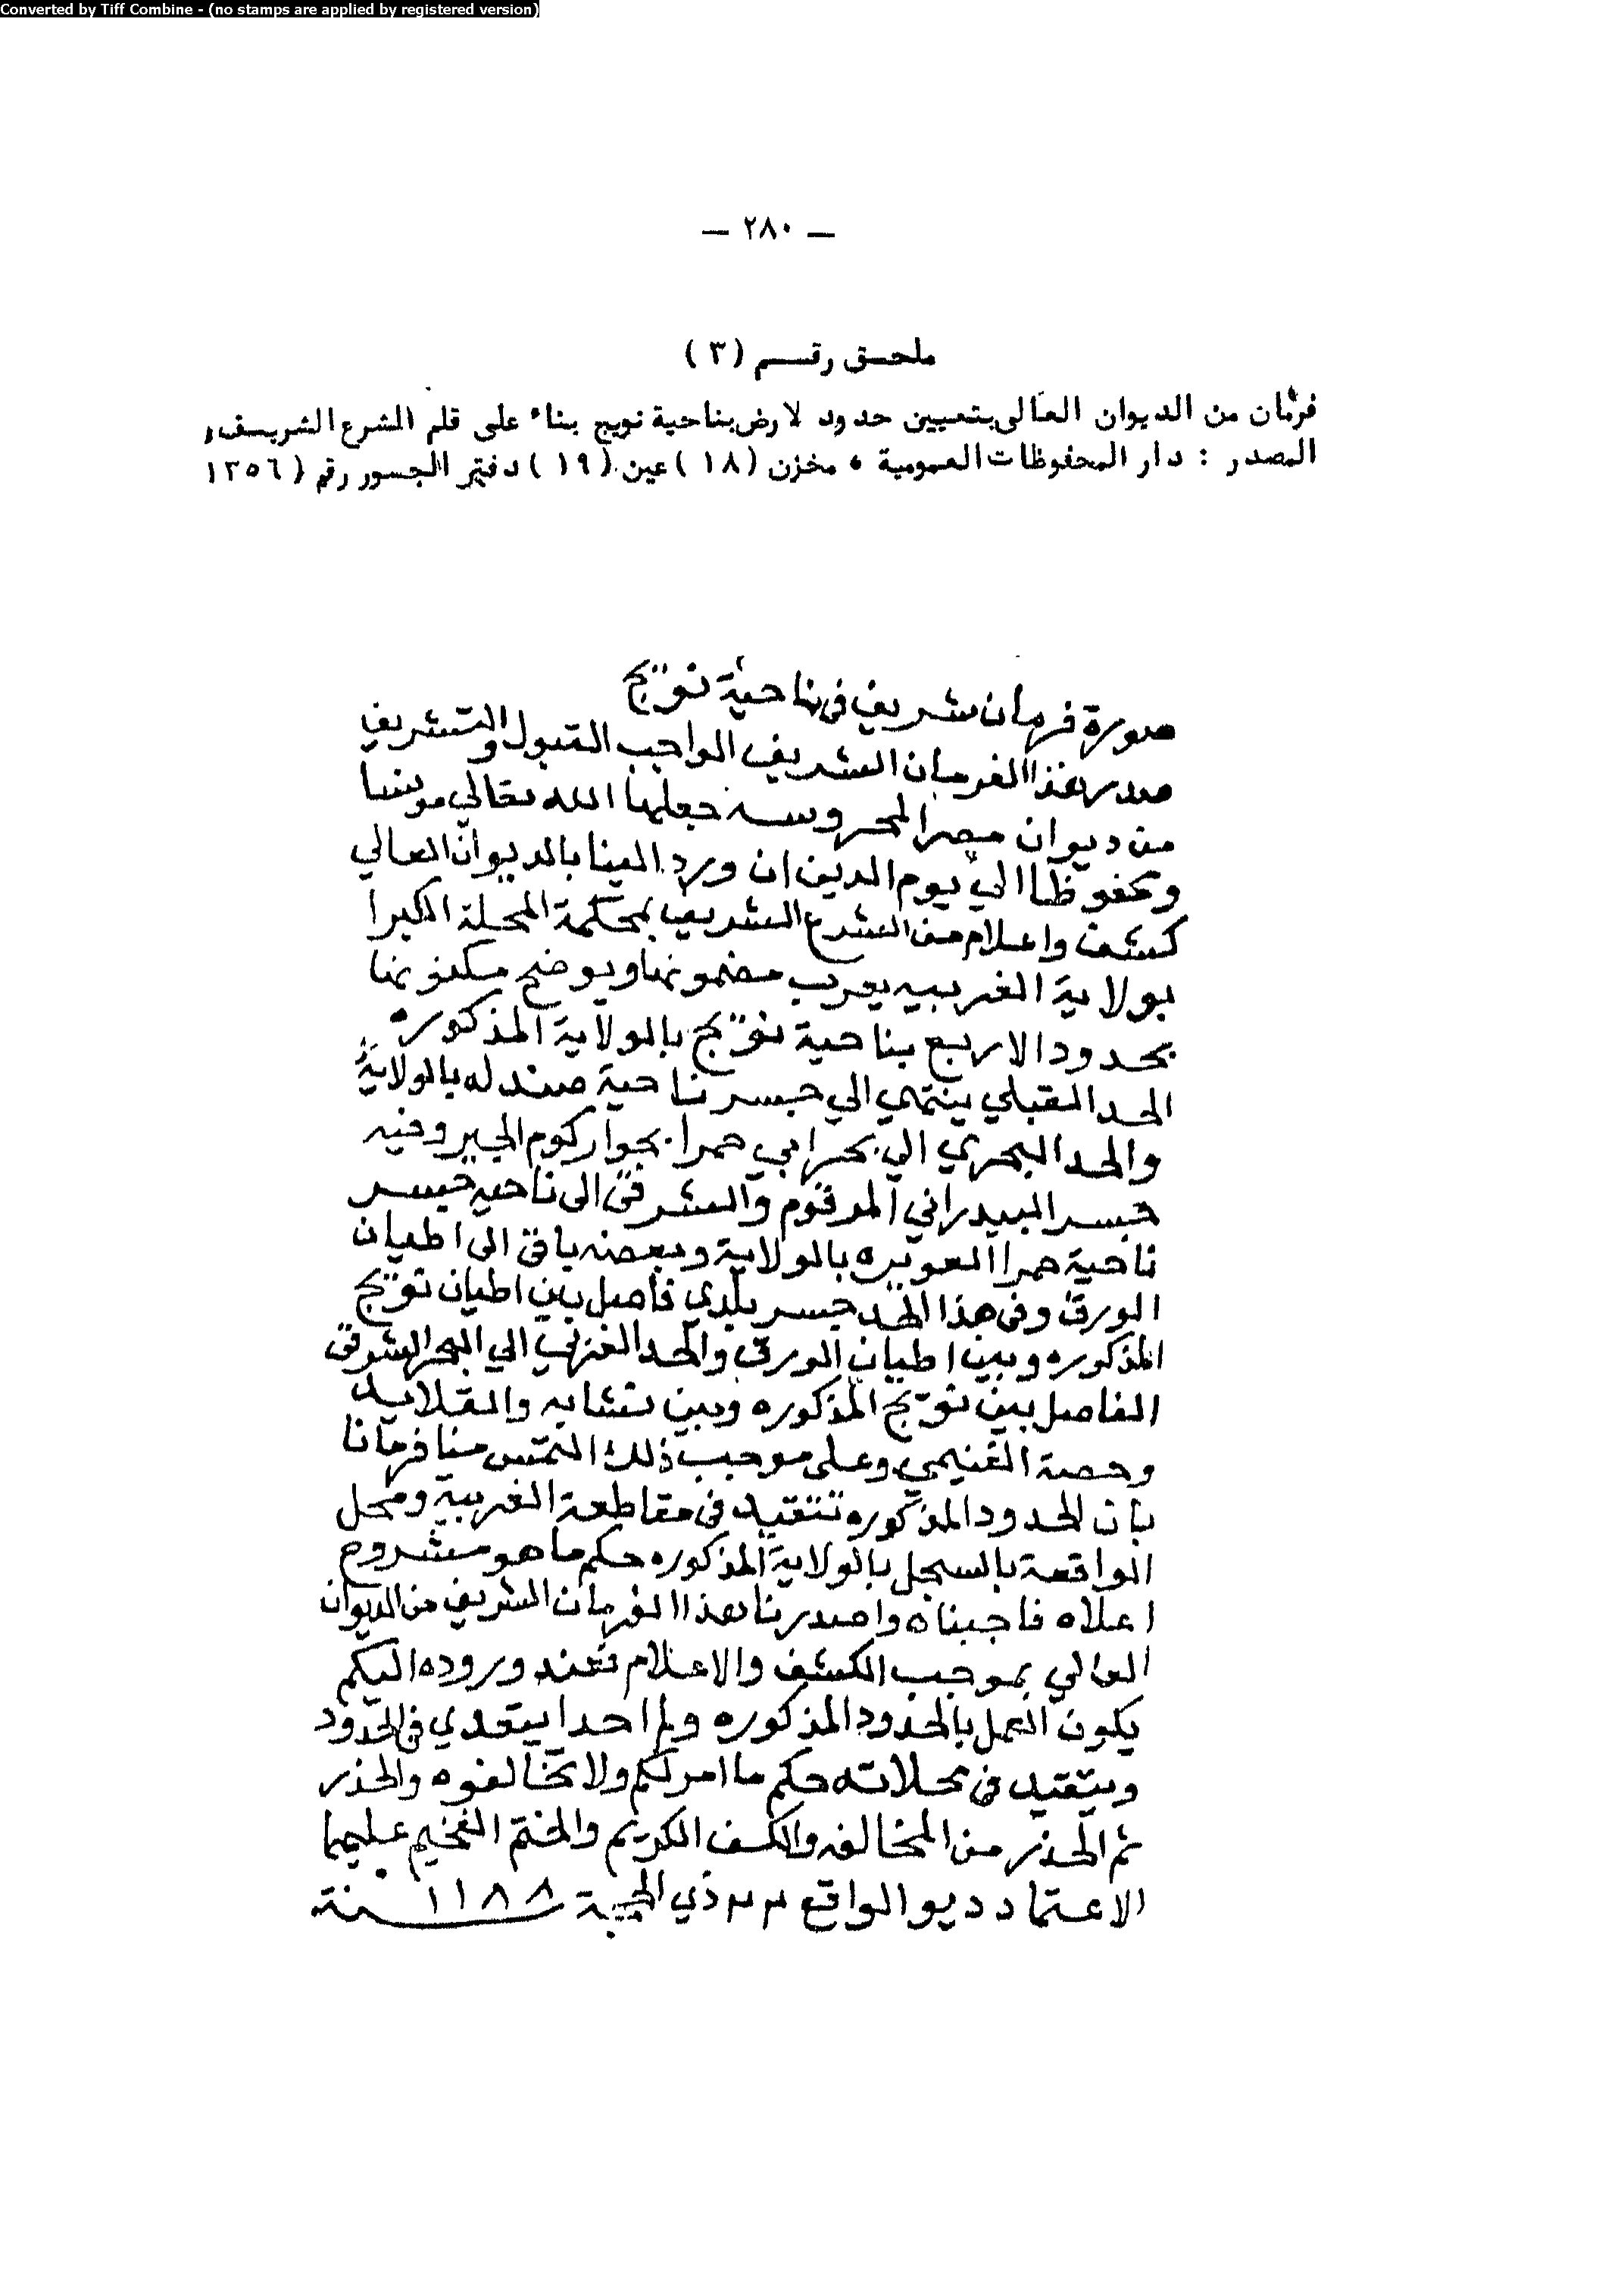 Converted by Tiff Combine - (no stamps are applied by registered version)
— ٢٨٠ —
ملحق رقم (٣)
فرمان من الديوان العالى بتعيين حدود لارض بناحية نويج بناء على قلم الشرع الشريف،
المصدر : دار المحفوظات العمومية ، مخزن (١٨) عين (١٩) دفتر الجسور رقم (١٣٥٦
صورة فرمان شريف فى ناحية نويج
صدر هذا الفرمان الشريف الواجب القبول والتشريف
من ديوان مصر المحروسه جعلها الله تعالي
ومحفوظا الي يوم الدين ان ورد الينا بالديوان العالي
كشف واعلام من الشرع الشريف بمحكمة المحلة الكبرا
بولاية الغربيه يعرب مضمونها ويوضح مكنونها
بحدود الاربع بناحية نويج بالولاية المذكوره
الحد القبلي ينتهي الي جسر ناحية صندله بالولاية
والحد البحري الي بحر ابي حمرا بجوار كوم الجير وفيه
جسر البيدراني المرقوم والشرقى الى ناحيه جسر
ناحية حمرا العويره بالولاية وبعضه باقى الى اطيان
الورق وفى هذا الحد جسر بلدي فاصل بين اطيان نويج
المذكوره وبين اطيان الورق والحد الغربي الي البحر الشرقى
الفاصل بين نويج المذكوره وبين شنشايه والقلايه
وحصة الغنيمي وعلى موجب ذلك التمس منا فرمانا
بان الحدود المذكوره تتقيد فى مقاطعة الغربية ومحل
الواقعة بالسجل بالولاية المذكوره حكم ما هو مشروح
اعلاه فاجبناه واصدرنا هذا الفرمان الشريف من الديوان
العالي بموجب الكشف والاعلام فعند وروده اليكم
يكون العمل بالحدود المذكوره ولم احدا يتعدي فى الحدود
ويتقيد فى محلاته حكم ما امرلكم ولا تخالفوه والحذر
ثم الحذر من المخالفه والكشف الكريم والختم الفخيم عليهما
الاعتماد ديو الواقع ٢٣ ذي الحجة سنة ١١٨٨